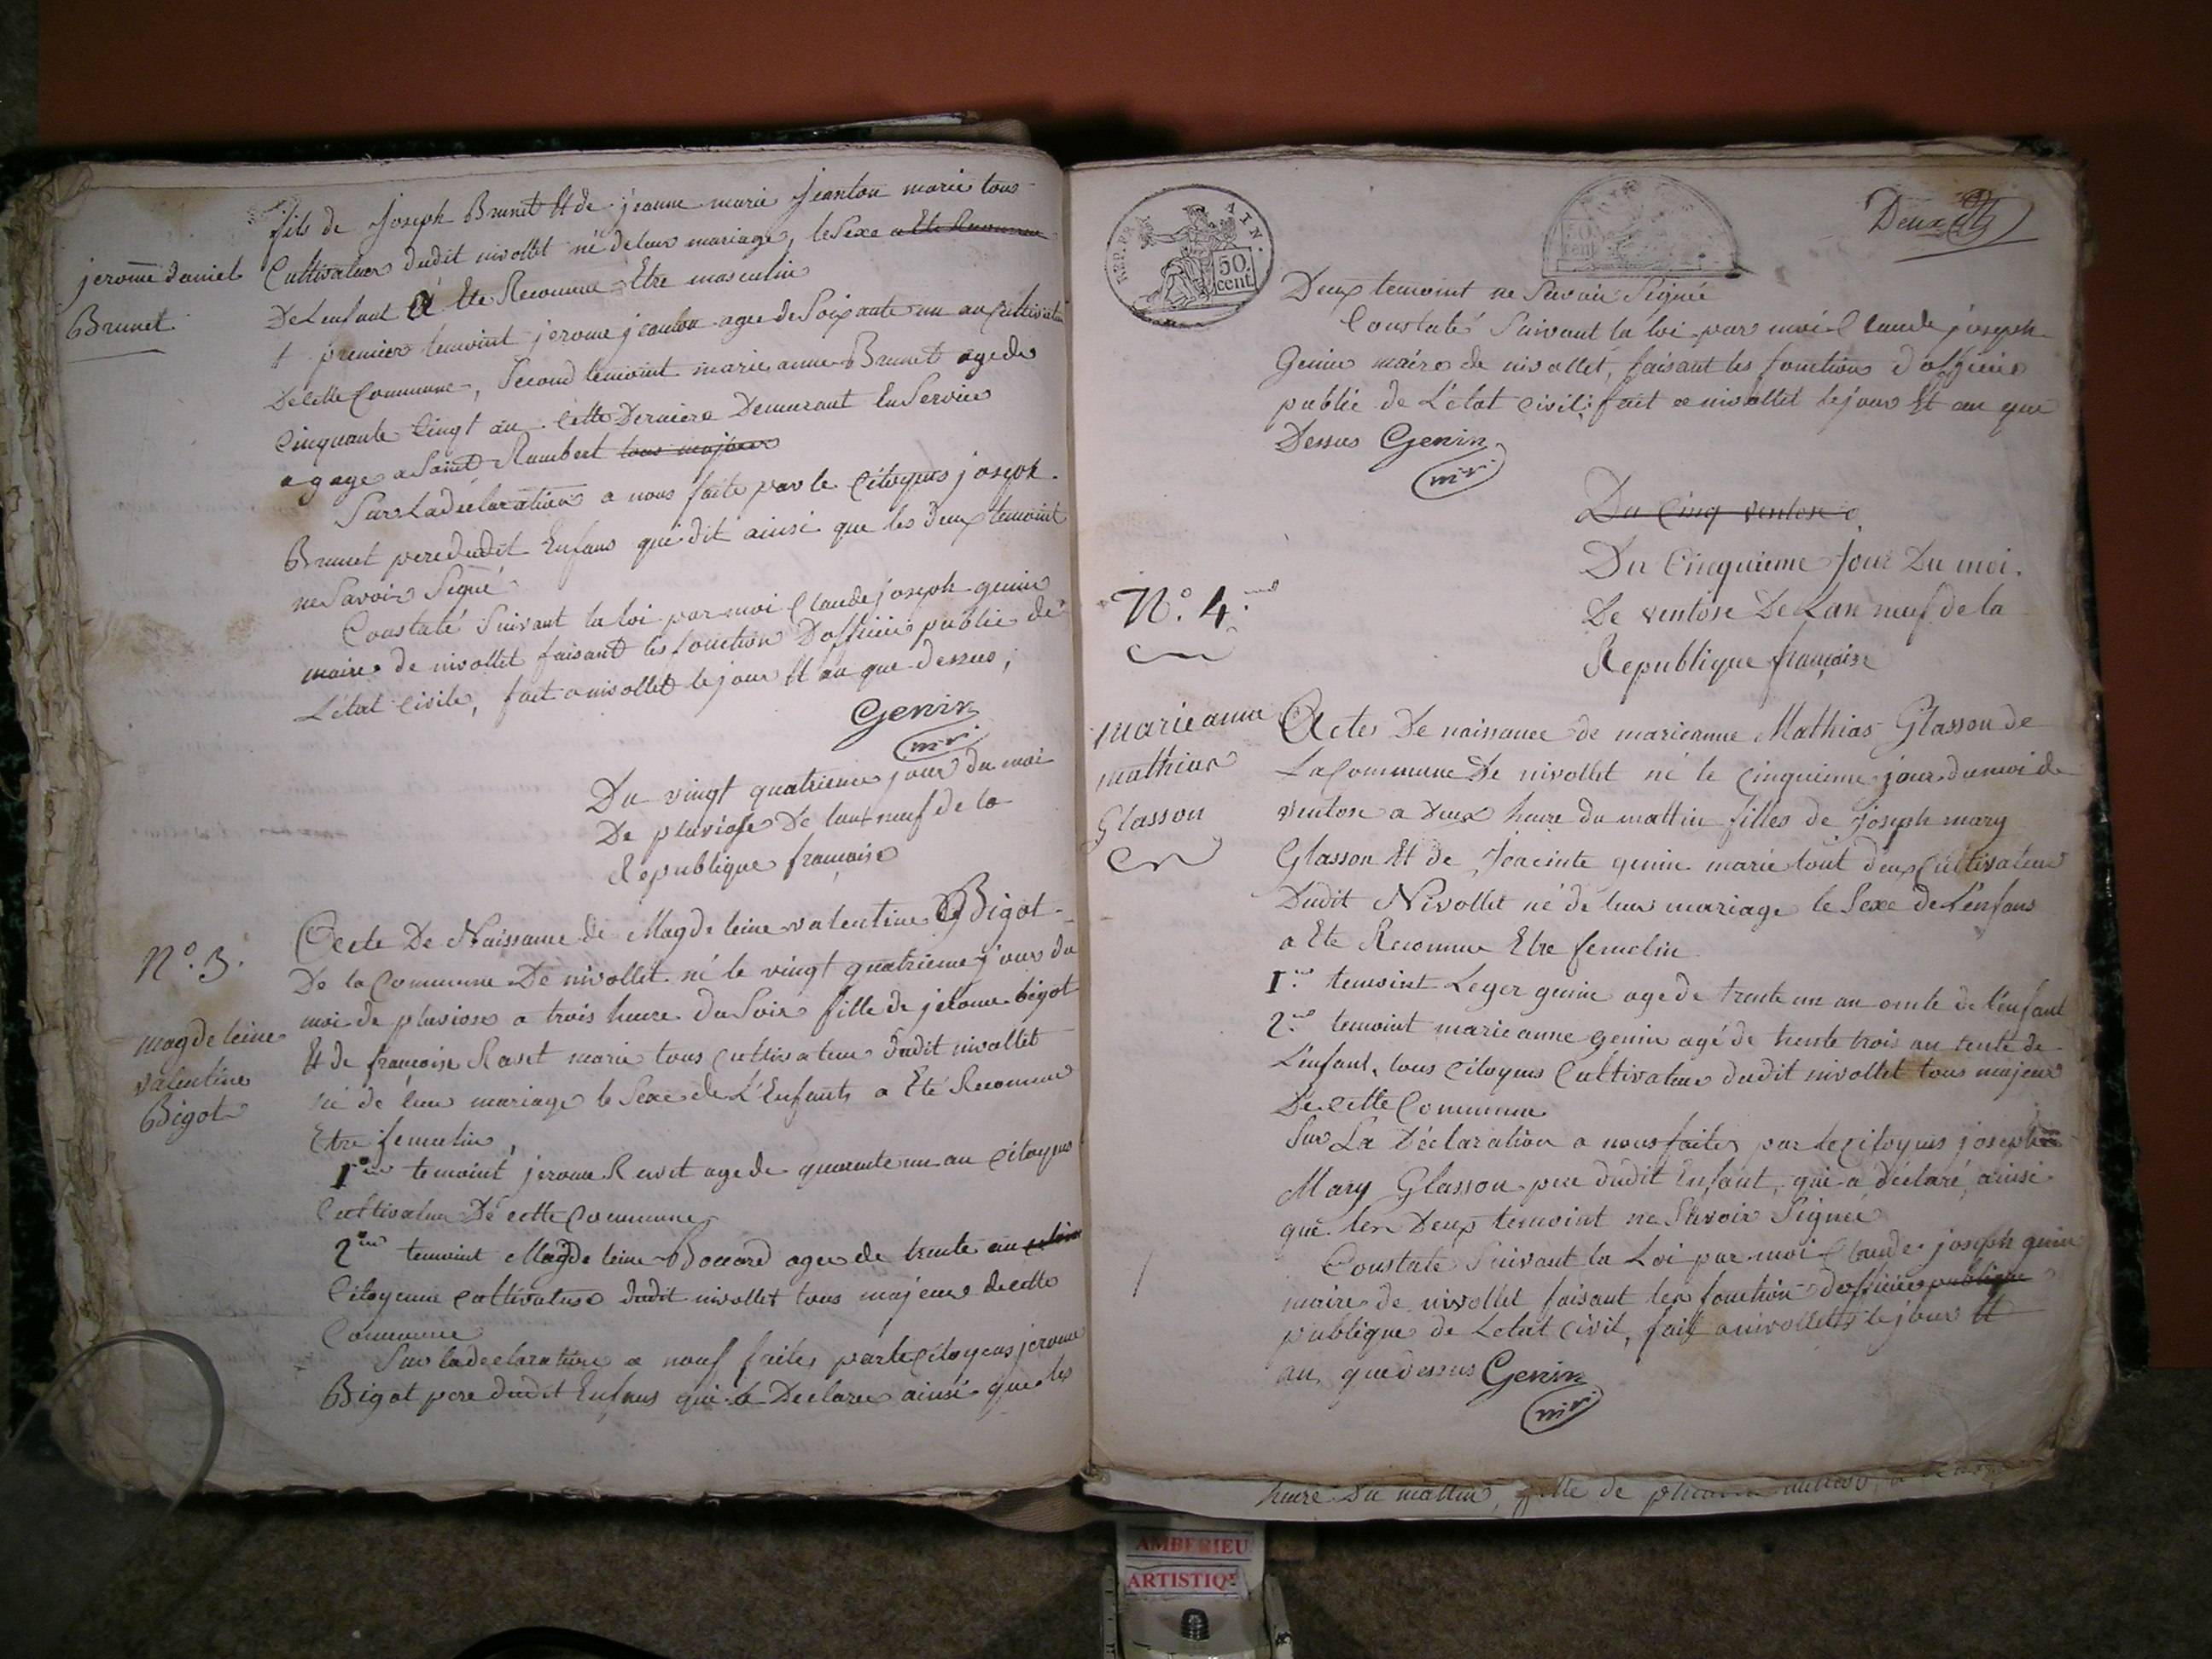 fils de Joseph Brunet Et de jeanne marie Jeanton marié tous
Cultivateur dudit nivollet né de leur mariage, le Sexe a Ete Reconnue
jerome daniel
Brunet
De Lenfant a Ete Reconnue Etre masculin
premier temoint jerome jeanton agee de Soixante un an Cultivateur
De Cette Commune, Second temoint marie anne Brunet agede
Cinquante Cingt an Cette Derniere Demurant En Service
a gage a Saint Rambert tous majeur
Sur La déclaration a nous faite par le Citoyens joseph
Brunet pere dudit Enfans qui dit ainsi que les deux temoint
ne Savoir Signé
Constaté Suivant la loi par moi Claude joseph genin
maire de nivollet faisant les fonction Dofficier public de
L'état Civile, fait a nivollet le jour Et an que dessus,
Genin
Du vingt quatrieme jour du moi
De pluviose De lant neuf de la
Republique française
N°. 3.
magdeleine
valentine
Bigot
Acte De Naissance de Magdeleine valentine Bigot
De la Commune De nivollet né le vingt quatrieme jour du
moi de pluviose a trois heure du Soir fille de jerome bigot
Et de françoise Ravet marie tous Cultivateur dudit nivollet
né de leur mariage le Sexe de L'Enfants a Eté Reconnue
Etre femelin,
1er temoint jerome Ravet agede quarente un an Citoyens
Cultivateur De cette Commune
2me temoint Magdeleine Boccard agee de trente an
Citoyenne Cultivateuse dudit nivollet tous majeur de cette
Commune
Sur la declaration a nous faites par le Citoyens jerome
Bigot pere dudit Enfans qui a Declaree ainsi que les
REP. FRA ATN.
50
cent
50
cent
Deux
Deux temoint ne Savoir Signée
Constaté Suivant la loi par moi Claude joseph
Genin maire de nivollet, faisant les fonctions d'officier
public de L'état Civil; fait a nivollet le jour Et an que
Dessus Genin
Du Cinq ventose
N°. 4.
Du Cinquieme Jour Du moi.
De ventose De Lan neuf de la
Republique française
marieanne
mathias
Glasson
Actes De naissance de marieanne Mathias Glasson de
La Commune De nivollet né le Cinquieme jour du moi de
ventose a Deux heure du mattin filles de Joseph mary
Glasson Et de Joacinte genin marie tout deux Cultivateur
Dudit Nivollet né de leur mariage le Sexe de L'enfans
a Ete Reconnue Etre femelin
1er temoint Leger genin agede trente un an omcle de l'enfant
2me temoint marie anne genin agé de trente trois an tente de
L'enfant, tous Citoyens Cultivateur dudit nivollet tous majeur
De cette Commune
Sur La Déclaration a nous faites par le Citoyens joseph
Mary Glasson pere dudit Enfant, qui a déclaré, ainsi
que les Deux temoint ne Savoir Signée
Constate Suivant la Loi par moi Claude joseph genin
maire de nivollet faisant les fonction d'officier publique
publique de Letat Civil, fait a nivollet le jour Et
an que dessus Genin
heure Du mattin, fille de
AMBERIEU
ARTISTIQ